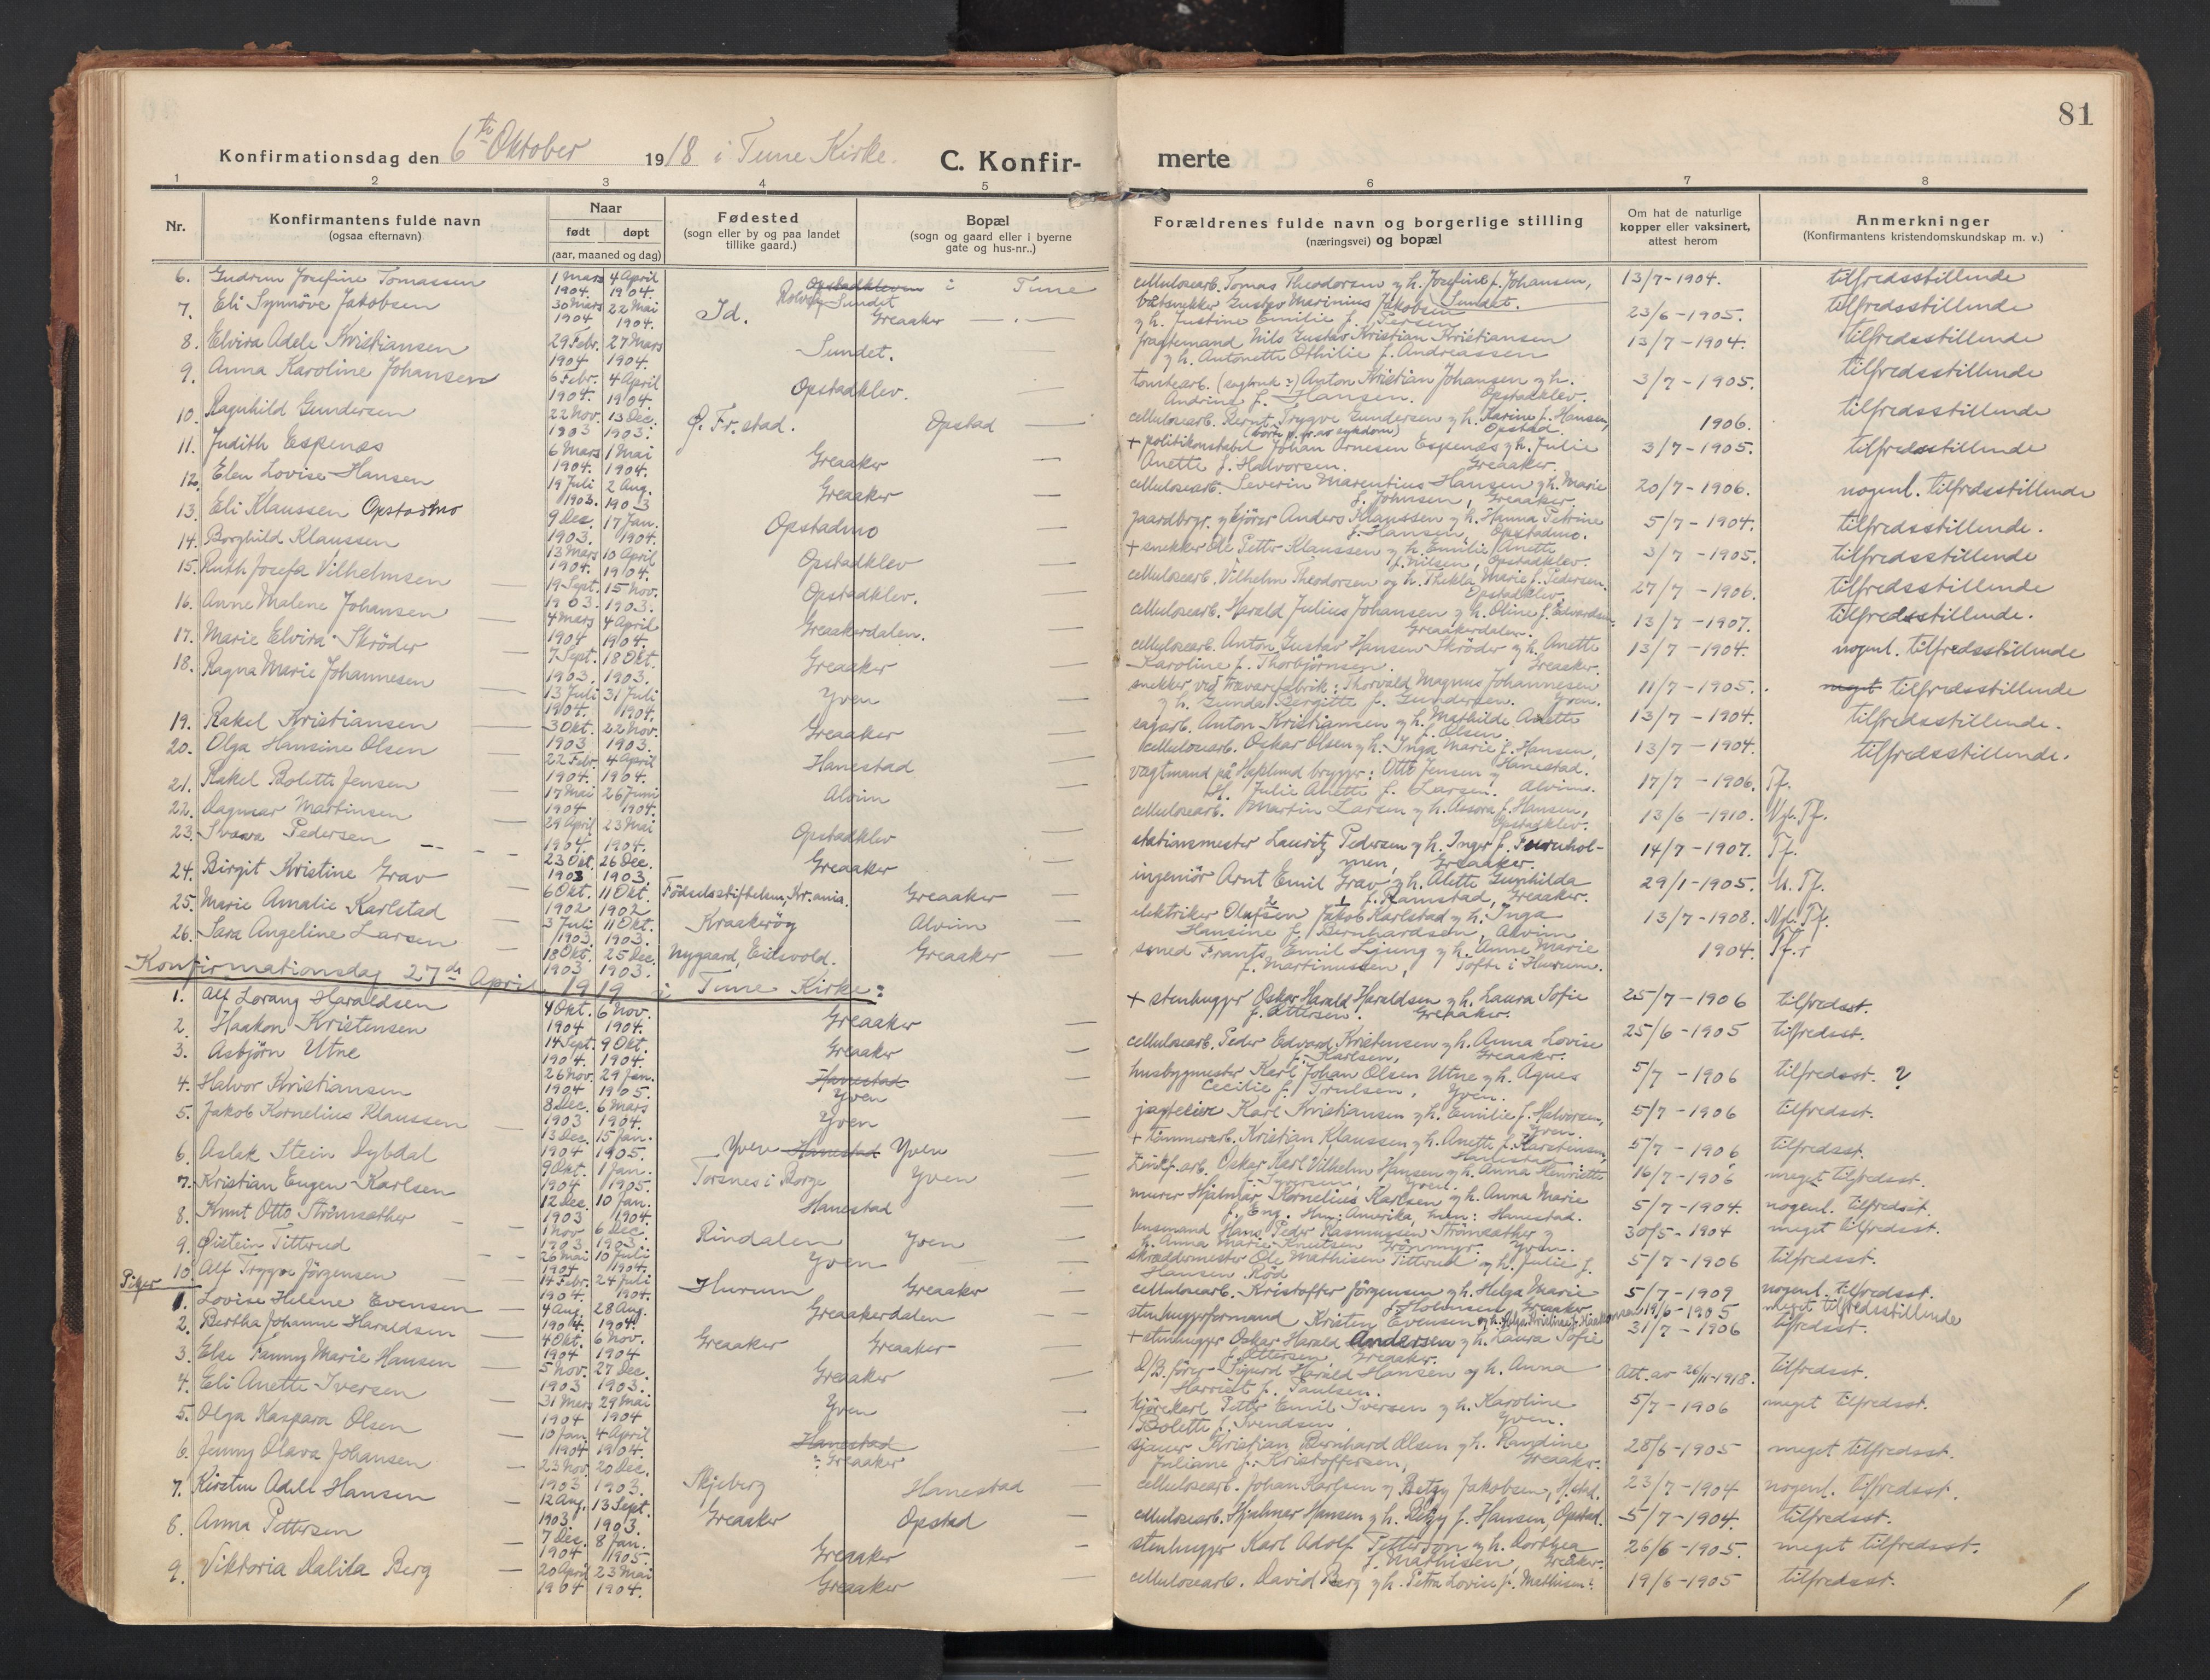 81
Konfirmationsdag den 6te Oktober 1918 i Tune Kirke. C. Konfirmerte
1 2 3 4 5 6 7 8
Nr. Konfirmantens fulde navn (ogsaa efternavn) Naar født døpt (aar, maaned og dag) Fødested (sogn eller by og paa landet tillike gaard.) Bopæl (sogn og gaard eller i byerne gate og hus-nr..) Forældrenes fulde navn og borgerlige stilling (næringsvei) og bopæl Om hat de naturlige kopper eller vaksinert, attest herom Anmerkninger (Konfirmantens kristendomskundskap m. v.)
6. Gudrun Josefine Tomassen 1 Mars 1904 4 April 1904. Opstadkleven i Tune Rolvsøy Sundet cellulosearb. Tomas Theodorsen og h. Josefine f. Johansen, Sundet. 13/7-1904. tilfredsstillende
7. Eli Synnöve Jakobsen 30 Mars 1904 22 Mai 1904. Id. Greaaker båtsnekker Gustav Marinius Jakobsen og h. Justine Emilie f. Persen 23/6-1905. tilfredsstillende
8. Elvira Adele Kristiansen 29 Febr. 1904 27 Mars 1904. Sundet. fragtemand Nils Gustav Kristian Kristiansen og h. Antonette Othilie f. Andreassen 13/7-1904. tilfredsstillende
9. Anna Karoline Johansen 6 Febr. 1904. 4 April 1904 Opstadklev. tomtearb. (sagbruk:) Anton Kristian Johansen og h. Andrine f. Hansen. Opstadklev. 3/7-1905. tilfredsstillende
10. Ragnhild Gundersen 22 Nov. 1903 13 Dec. 1903. Ø. Fr.stad. Opstad cellulosearb. Bernt Trygve Gundersen og h. Karine f. Hansen, Opstad. 1906. tilfredsstillende
11. Judith Espenæs 6 Mars 1904. 1 Mai 1904. Greaaker + politikonstabel Johan Arnesen Espenæs og h. Julie Anette f. Halvorsen. Greaaker. 3/7-1905. tilfredsstillende
12. Elen Lovise Hansen 19 Juli 1903. 2 Aug. 1903 Greaaker cellulosearb. Severin Marentius Hansen og h. Marie f. Johnsen, Greaaker. 20/7-1906. nogenl. tilfredsstillende
13. Eli Klaussen Opstadmo 9 Dec. 1903. 17 Jan. 1904. Opstadmo gaardbrgr. og kjörer Anders Klaussen og h. Hanna Petrine f. Hansen, Opstadmo. 5/7-1904. tilfredsstillende.
14. Borghild Klaussen 13 Mars 1904. 10 April 1904. Opstadklev + snekker Ole Petter Klaussen og h. Emilie Anette f. Nilsen, Opstadklev. 3/7-1905. tilfredsstillende
15. Ruth Josefa Vilhelmsen 19 Sept. 1903. 15 Nov. 1903. Opstadklev. cellulosearb. Vilhelm Theodorsen og h. Thekla Marie f. Pedersen. Opstadklev. 27/7-1906. tilfredsstillende
16. Anne Malene Johansen 4 Mars 1904 4 April 1904. Greaakerdalen. cellulosearb. Harald Julius Johansen og h. Oline f. Edvardsen. Greaakerdalen. 13/7-1907. tilfredsstillende.
17. Marie Elvira Skröder 7 Sept. 1903. 18 Okt. 1903. Greaaker cellulosearb. Anton Gustav Hansen Skröder og h. Anette Karoline f. Thorbjörnsen. Greaaker. 13/7-1904. nogenl. tilfredsstillende
18. Ragna Marie Johannesen 13 Juli 1904. 31 Juli 1904. Yven snekker ved trævarefabrik: Thorvald Magnus Johannesen og h. Gunda Bergitte f. Gundersen. Yven. 11/7-1905. meget tilfredsstillende
19. Rakel Kristiansen 3 Okt. 1903 22 Nov. 1903. Greaaker sagarb. Anton Kristiansen og h. Mathilde Anette f. Olsen. 13/7-1904. tilfredsstillende.
20. Olga Hansine Olsen 22 Febr. 1904. 4 April 1904. Hanestad cellulosearb. Oskar Olsen og h. Inga Marie f. Hansen, Hanestad. 13/7-1904. tilfredsstillende.
21. Rakel Bolette Jensen 17 Mai 1904 26 Juni 1904. Alvim vagtmand på Hafslund brygge: Otto Jensen og H. Julie Anette f. Larsen. Alvim. 17/7-1906. Tf.
22. Dagmar Martinsen 29 April 1904. 23 Mai 1904. Opstadklev cellulosearb. Martin Larsen og h. Aasora f. Hansen, Opstadklev. 13/6-1910. Ngl. Tf.
23. Svava Pedersen 23 Okt. 1903 26 Dec. 1903. Greaaker stationsmester Lauritz Pedersen og h. Inger f. Furuholmen, Greaaker. 14/7-1907. Tf.
24. Birgit Kristine Grav 6 Okt. 1902 11 Okt. 1902. Födselsstiftelsen, Kr.ania. Greaaker ingeniör Arnt Emil Grav og h. Alette Gunhilda f. Ramstad, Greaaker. 29/1-1905. M. Tf.
25. Marie Amalie Karlstad 3 Juli 1903. 11 Okt. 1903. Kraakeröy Alvim elektriker Olufsen Jakob Karlstad og h. Inga Hansine f. Bernhardsen, Alvim 13/7-1908. Ngl. Tf.
26. Sara Angeline Larsen 18 Okt. 1903 25 Dec. 1903. Nygaard, Eidsvold. Greaaker smed Frants Emil Ljung og h. Anne Marie f. Martinussen, Tofte i Hurum. 1904. Tf.
Konfirmationsdag 27de April 1919 i Tune Kirke:
1. Alf Lorang Haraldsen 4 Okt. 1904 6 Nov. 1904. Greaaker + stenhugger Oskar Harald Haraldsen og h. Laura Sofie f. Ottersen. Greaaker. 25/7-1906 tilfredsst.
2. Haakon Kristensen 14 Sept. 1904. 9 Okt. 1904. Greaaker cellulosearb. Peder Edvard Kristensen og h. Anna Lovise f. Karlsen, Greaaker. 25/6-1905 tilfredsst.
3. Asbjörn Utne 26 Nov. 1904 29 Jan. 1905. Hanestad Yven husbygmester Karl Johan Olsen Utne og h. Agnes Cecilie f. Trulsen, Yven. 5/7-1906 tilfredsst. ?
4. Halvor Kristiansen 8 Dec. 1903 6 Mars 1904. Yven jagteier Karl Kristiansen og h. Emilie f. Halvorsen, Yven. 5/7-1906 tilfredsst.
5. Jakob Kornelius Klaussen 13 Dec. 1904 15 Jan. 1905. Yven Hanestad Yven + tömmerarb. Kristian Klaussen og h. Anette f. Karstensen, Hanestad 5/7-1906 tilfredsst.
6. Aslak Stein Dybdal 9 Okt. 1904 1 Jan. 1905. Torsnes i Borge Yven Oskar Karl Vilhelm Hansen og h. Anna Henriette Yven. 16/7-1906 meget tilfredsst.
7. Kristian Eugen Karlsen 12 Dec. 1903 10 Jan. 1904. Hanestad murer Hjalmar Kornelius Karlsen og h. Anna Marie f. Eng. Han: Amerika, hun: Hanestad. 5/7-1904. nogenl. tilfredsst.
8. Knut Otto Strömsæther 1 Nov 1903 6 Dec. 1903. Rindalen Yven busmand Hans Peder Rasmussen Strömsæther og h. Anna Marie Knutsen Grönmyr. Yven. 30/5-1904 meget tilfredsst.
9. Øistein Titterud 26 Mai 1904 10 Juli 1904. Yven skræddermester Ole Mathisen Titterud og h. Julie f. Hansen Röd 5/7-1906 tilfredsst.
10. Alf Trygve Jörgensen 14 Febr. 1904. 24 Juli 1904. Hurum Greaaker cellulosearb. Kristoffer Jörgensen og h. Helga Marie f. Holmsen, Greaaker. 5/7-1909 nogenl. tilfredsst.
Piker
1. Lovise Helene Evensen 4 Aug. 1904. 28 Aug. 1904. Greaakerdalen stenhuggerformand Kristen Evensen og h. Helga Kristine f. Haakonsen 19/6-1905 meget tilfredsstillende
2. Bertha Johanne Haraldsen 4 Okt. 1904 6 Nov. 1904 Greaaker Greaaker + stenhugger Oskar Harald Andersen og h. Laura Sofie f. Ottersen, Greaaker. 31/7-1906 tilfredsst.
3. Else Fanny Marie Hansen 5 Nov. 1903 27 Dec. 1903. Greaaker D/B. förer Sigurd Harald Hansen og h. Anna Harriet f. Paulsen. Att. av 26/11-1918. tilfredsst.
4. Eli Anette Iversen 31 Mars 1904 29 Mai 1904 Yven kjörekarl Petter Emil Iversen og h. Karoline Bolette f. Svendsen, Yven. 5/7-1906 meget tilfredsst.
5. Olga Kaspara Olsen 10 Jan. 1904 4 April 1904. Hanestad : Greaaker sjauer Kristian Bernhard Olsen og h. Randine Juliane f. Kristoffersen, Greaaker. 28/6-1905 meget tilfredsst.
6. Jenny Olava Johansen 23 Nov. 1903 20 Dec. 1903. Skjeberg Hanestad cellulosearb. Johan Karlsen og Betzy Jakobsen, H.stad. 23/7-1904 nogenl. tilfredsst.
7. Kirsten Adele Hansen 12 Aug. 1903. 13 Sept. 1903. Greaaker Opstad cellulosearb. Hjalmar Hansen og h. Betzy f. Hansen, Opstad. 5/7-1904. tilfredsst.
8. Anna Pettersen 7 Dec. 1904 8 Jan. 1905. Greaaker stenhugger Karl Adolf Petterson og h. Dorthea f. Mathisen, Greaaker. 26/6-1905. meget tilfredsst.
9. Viktoria Dalila Berg 20 April 1904 23 Mai 1904. Greaaker cellulosearb. David Berg og h. Petra Lovise f. Mathisen. 19/6-1905 tilfredsst.